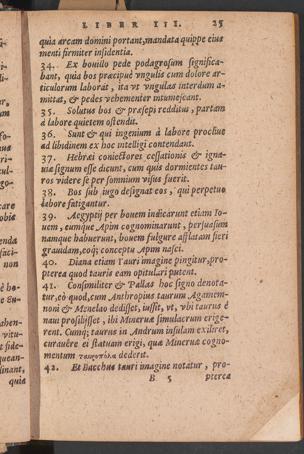 LIBER III. 25
quia arcam domini portant, mandata quippe eius
menti firmiter insidentia.
34. Ex bouillo pede podagrosum significa-
bant, quia bos præcipuè vngulis cum dolore ar-
ticulorum laborat, ita vt vngulas interdum a-
mittat, & pedes vehementer intumescant.
35. Solutus bos & præsepi redditus, partam
à labore quietem ostendit.
36. Sunt & qui ingenium à labore procliue
ad libidinem ex hoc intelligi contendant.
37. Hebræi coniectores cessationis & igna-
uiæ signum esse dicunt, cum quis dormientes tau-
ros videre se per somnium visus fuerit.
38. Bos sub iugo designat eos, qui perpetuo
labore fatigantur.
39. Aegyptij per bouem indicarunt etiam Io-
uem, eumque Apim cognominarunt, persuasum
namque habuerunt, bouem fulgure afflatam fieri
grauidam, eoque conceptu Apim nasci.
40. Diana etiam Tauri imagine pingitur, pro-
pterea quod tauris eam opitulari putent.
41. Consimiliter & Pallas hoc signo denota-
tur, eò quod, cum Anthropius taurum Agamem-
noni & Menelao dedisset, iussit, vt, vbi taurus è
naui prosilisset, ibi Mineruæ simulacrum erige-
rent. Cumque taurus in Andrum insulam exiliret,
curauêre ei statuam erigi, quæ Mineruæ cogno-
mentum dederit.
42. Et Bacchus tauri imagine notatur, pro-
B 5 pterea